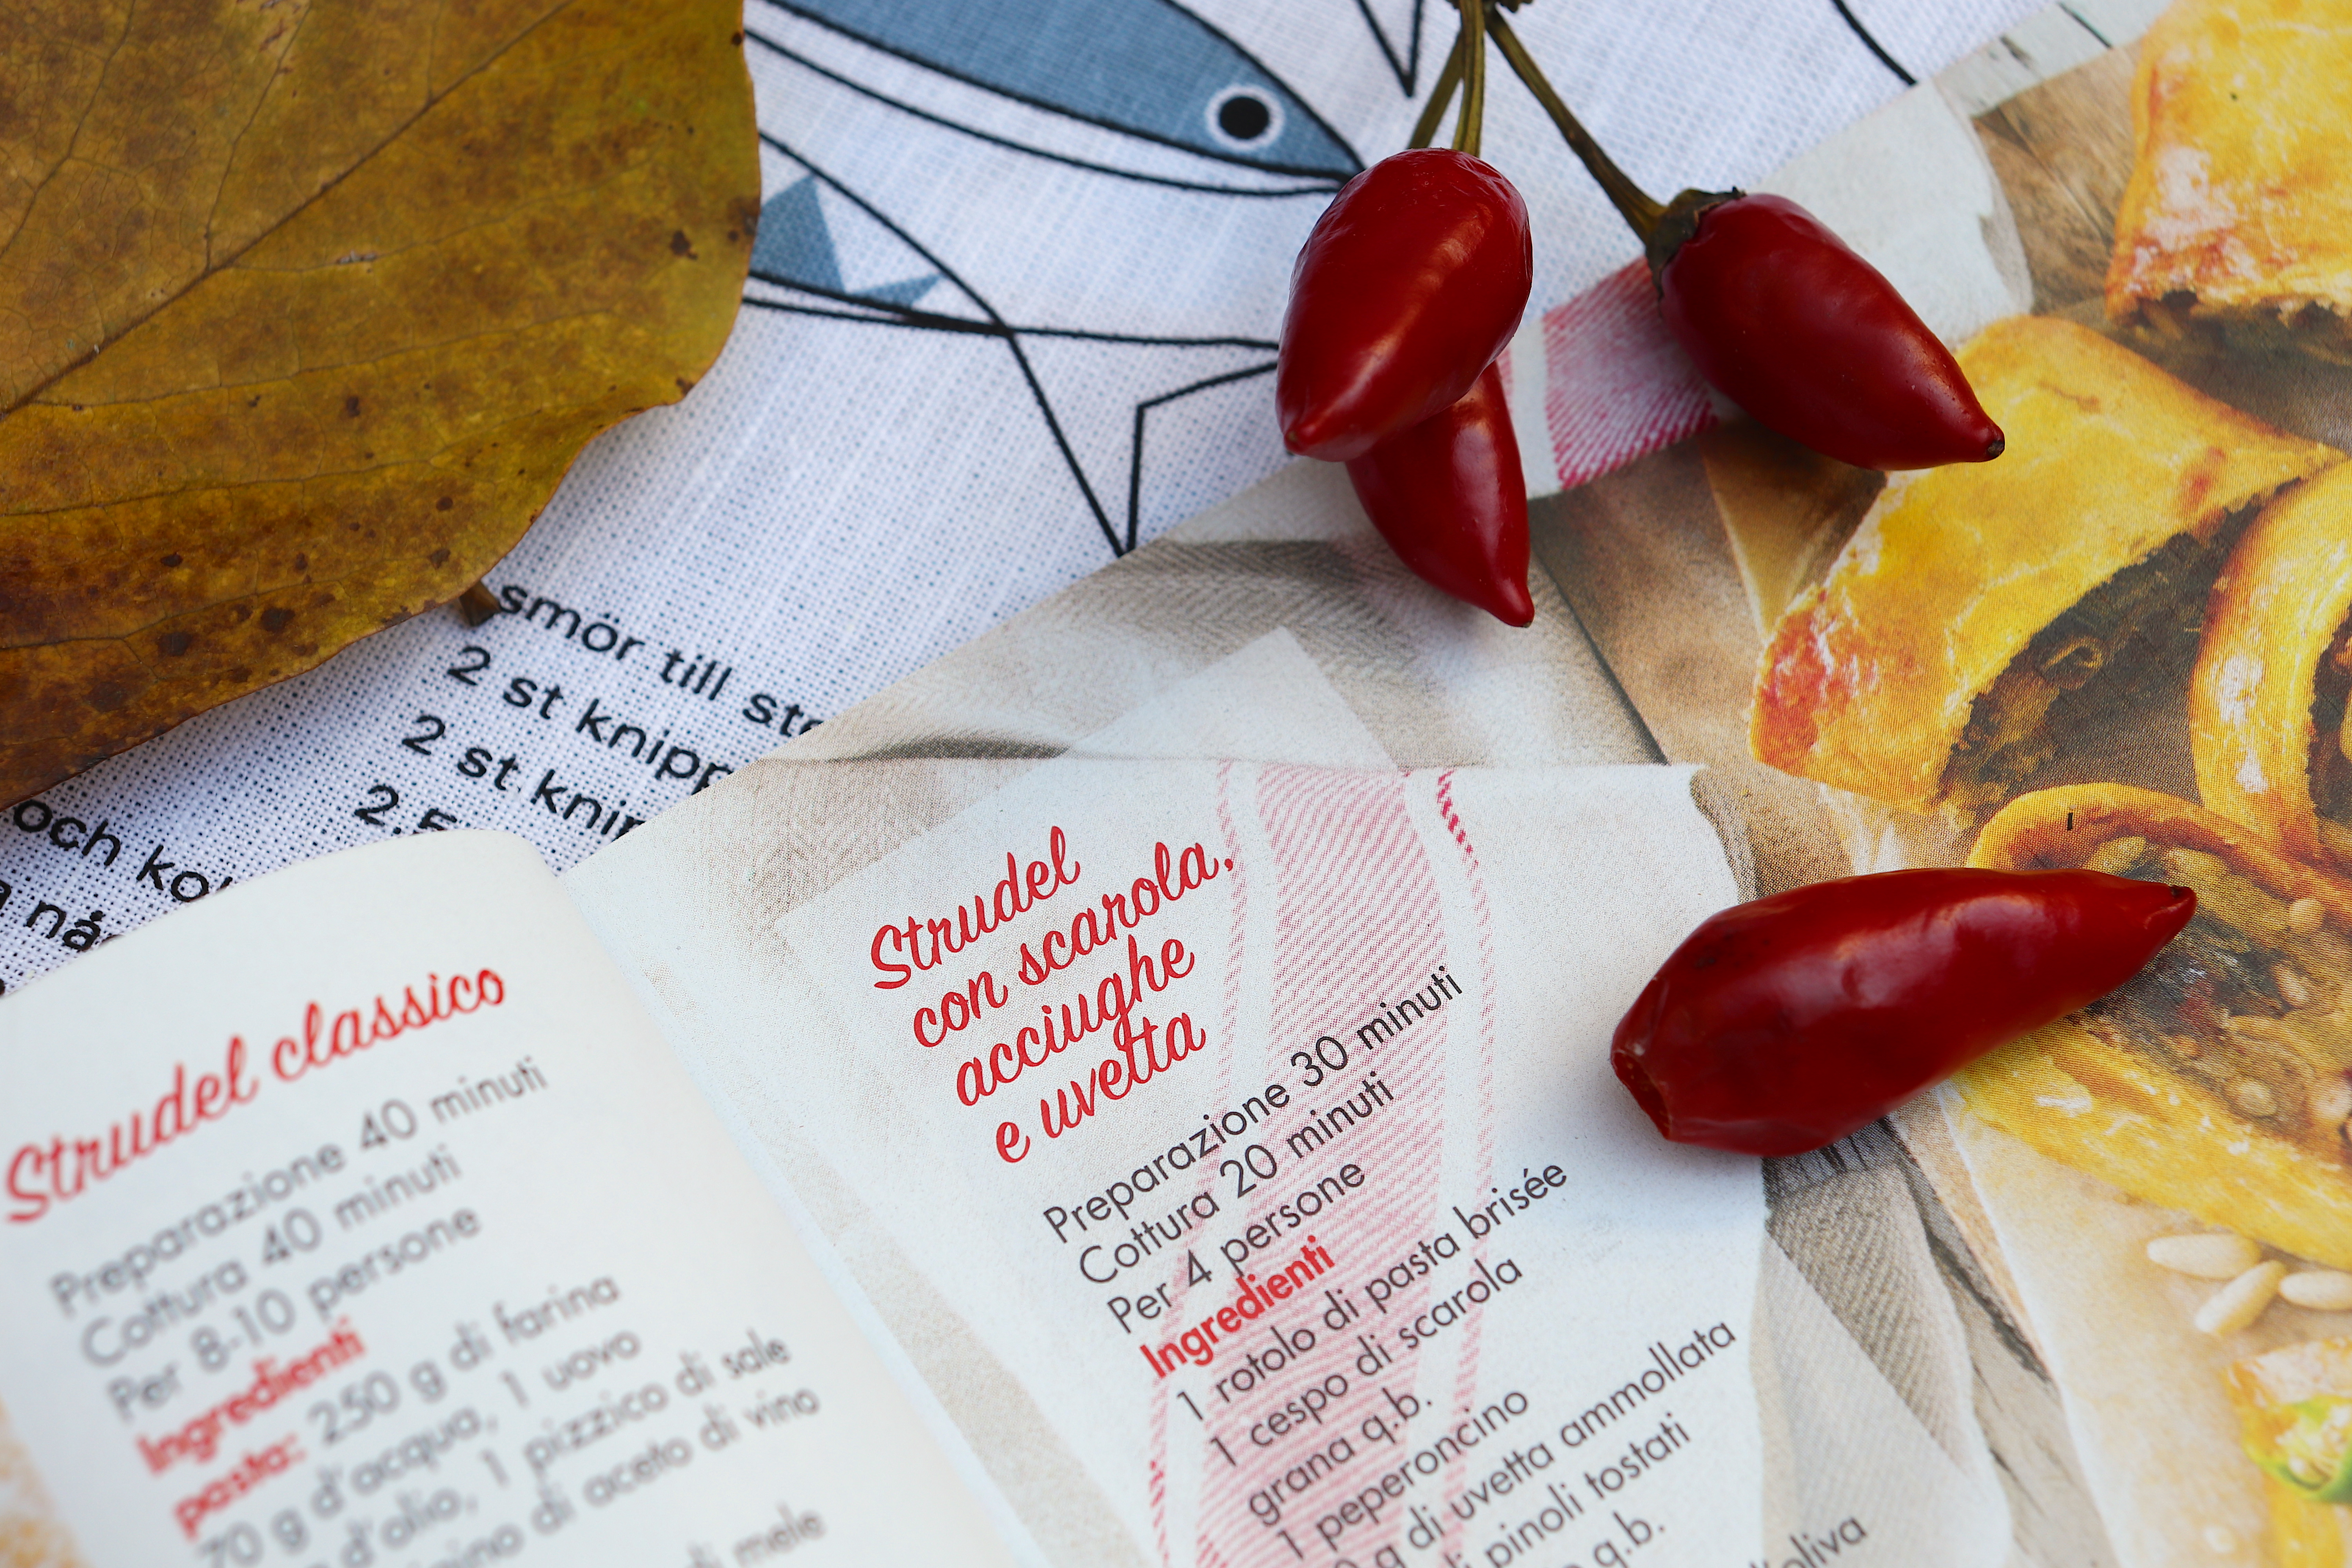 smör till
2 st
2 st
och
Strudel classico
Preparazione 40 minuti
Cottura 40 minuti
Per 8-10 persone
Ingredienti
pasta: 250 g di farina
70 g d'acqua, 1 uovo
d'olio, 1 pizzico di sale
di aceto di vino
di mele
Strudel
con scarola,
acciughe
e uvetta
Preparazione 30 minuti
Cottura 20 minuti
Per 4 persone
Ingredienti
1 rotolo di pasta brisée
1 cespo di scarola
grana q.b.
1 peperoncino
g di uvetta ammollata
di pinoli tostati
q.b.